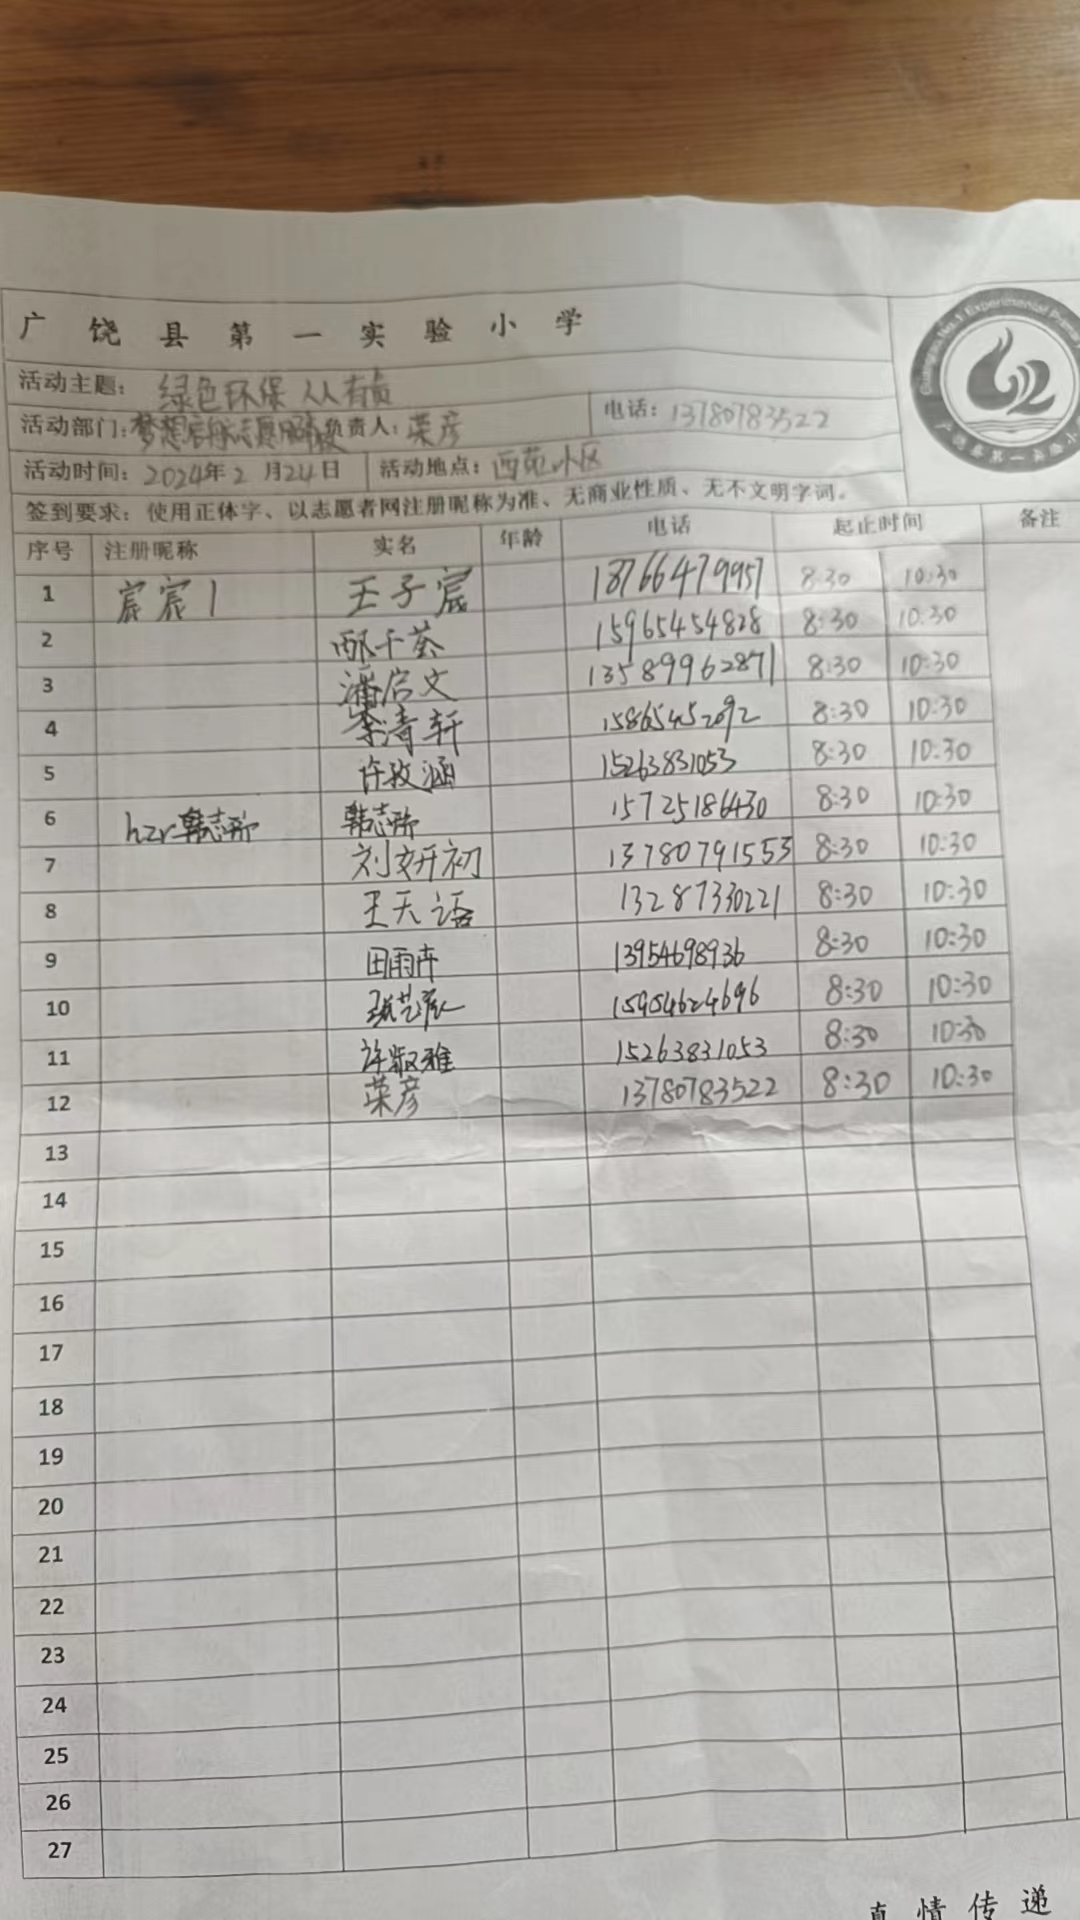 广饶县第一实验小学
活动主题：绿色环保 人人有责
活动部门：梦想启航志愿 负责人：荣彦 电话：13780783522
活动时间：2024年2月24日 活动地点：西苑小区
签到要求：使用正体字、以志愿者网注册昵称为准、无商业性质、无不文明字词。
序号 注册昵称 实名 年龄 电话 起止时间 备注
1 宸宸1 王子宸 18766479957 8:30 10:30
2 邴千荟 15965454828 8:30 10:30
3 潘启文 13589962871 8:30 10:30
4 李清轩 15865452092 8:30 10:30
5 许孜涵 15263831053 8:30 10:30
6 hzr韩志 韩志 15725186430 8:30 10:30
7 刘妍初 13780791553 8:30 10:30
8 王天语 13287330221 8:30 10:30
9 田雨卉 13954698936 8:30 10:30
10 艺宸 15954624696 8:30 10:30
11 许淑雅 15263831053 8:30 10:30
12 荣彦 13780783522 8:30 10:30
13
14
15
16
17
18
19
20
21
22
23
24
25
26
27
真情传递